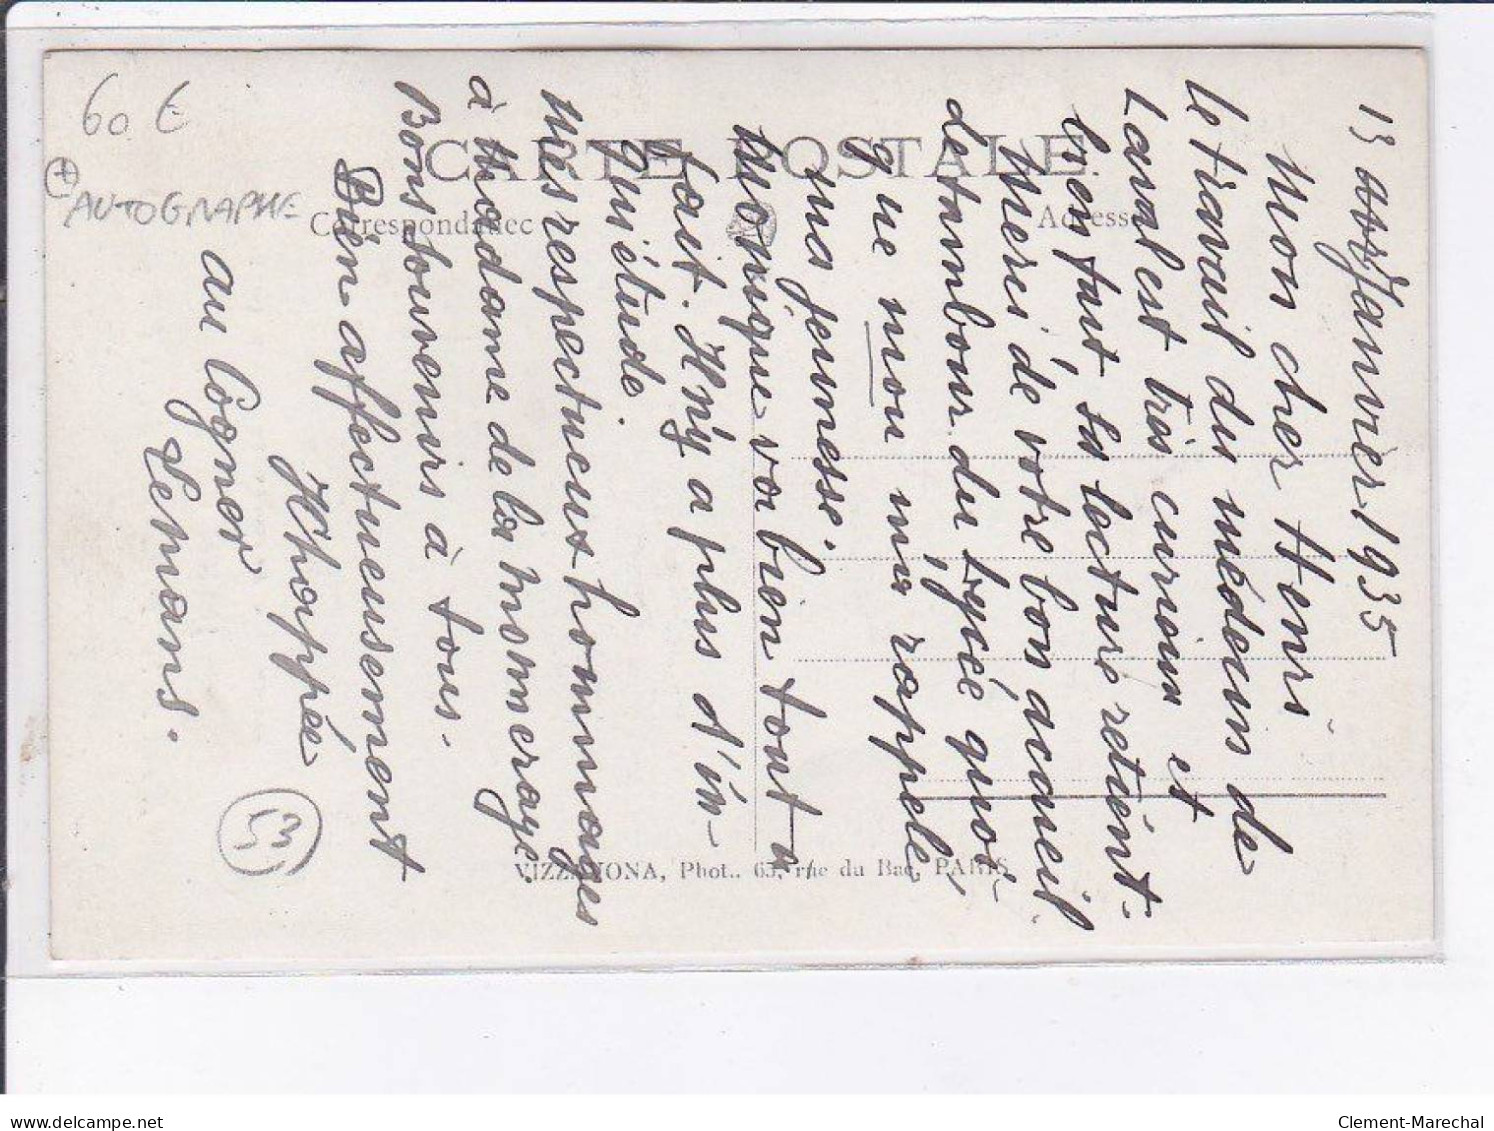 13 Janvier 1935
Mon cher Henri
Le travail du médecin de
Laval est très curieux et
bien fait. Sa lecture retient.
Merci de votre bon accueil
de tambour du Lycée quoi-
que mou me rappelle,
ma jeunesse.
Monique va bien tout à
fait. Il n'y a plus d'in-
quiétude.
Mes respectueux hommages
à Madame de la Mommeraye.
Bons souvenirs à tous.
Bien affectueusement
Khoppée
au Cogner
Lemans.
CARTE POSTALE
Correspondance
Adresse
VIZZAVONA, Phot., 65, rue du Bac, PARIS
60 €
+
AUTOGRAPHE
53
delcampe.net
Clement-Marechal